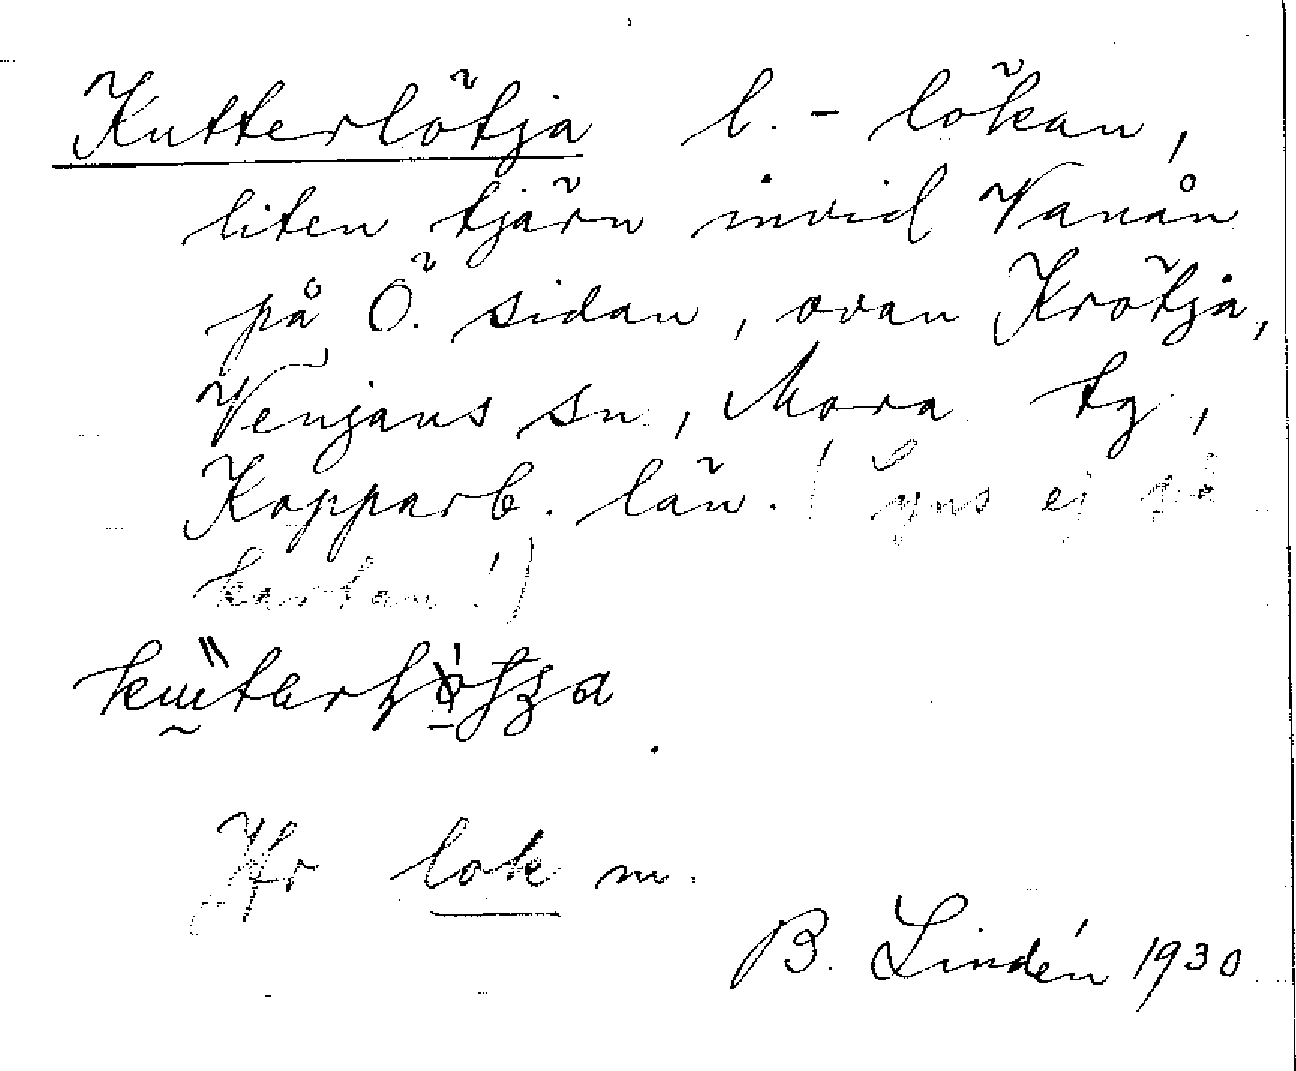 Kutterlötja l. - lökan,
liten tjärn invid Vanån
på Ö. sidan, ovan Krötja,
Venjans sn, Mora tg.,
Kopparb. län. (Syns ej på
kartan!)
Jfr lok m.
B. Lindén 1930